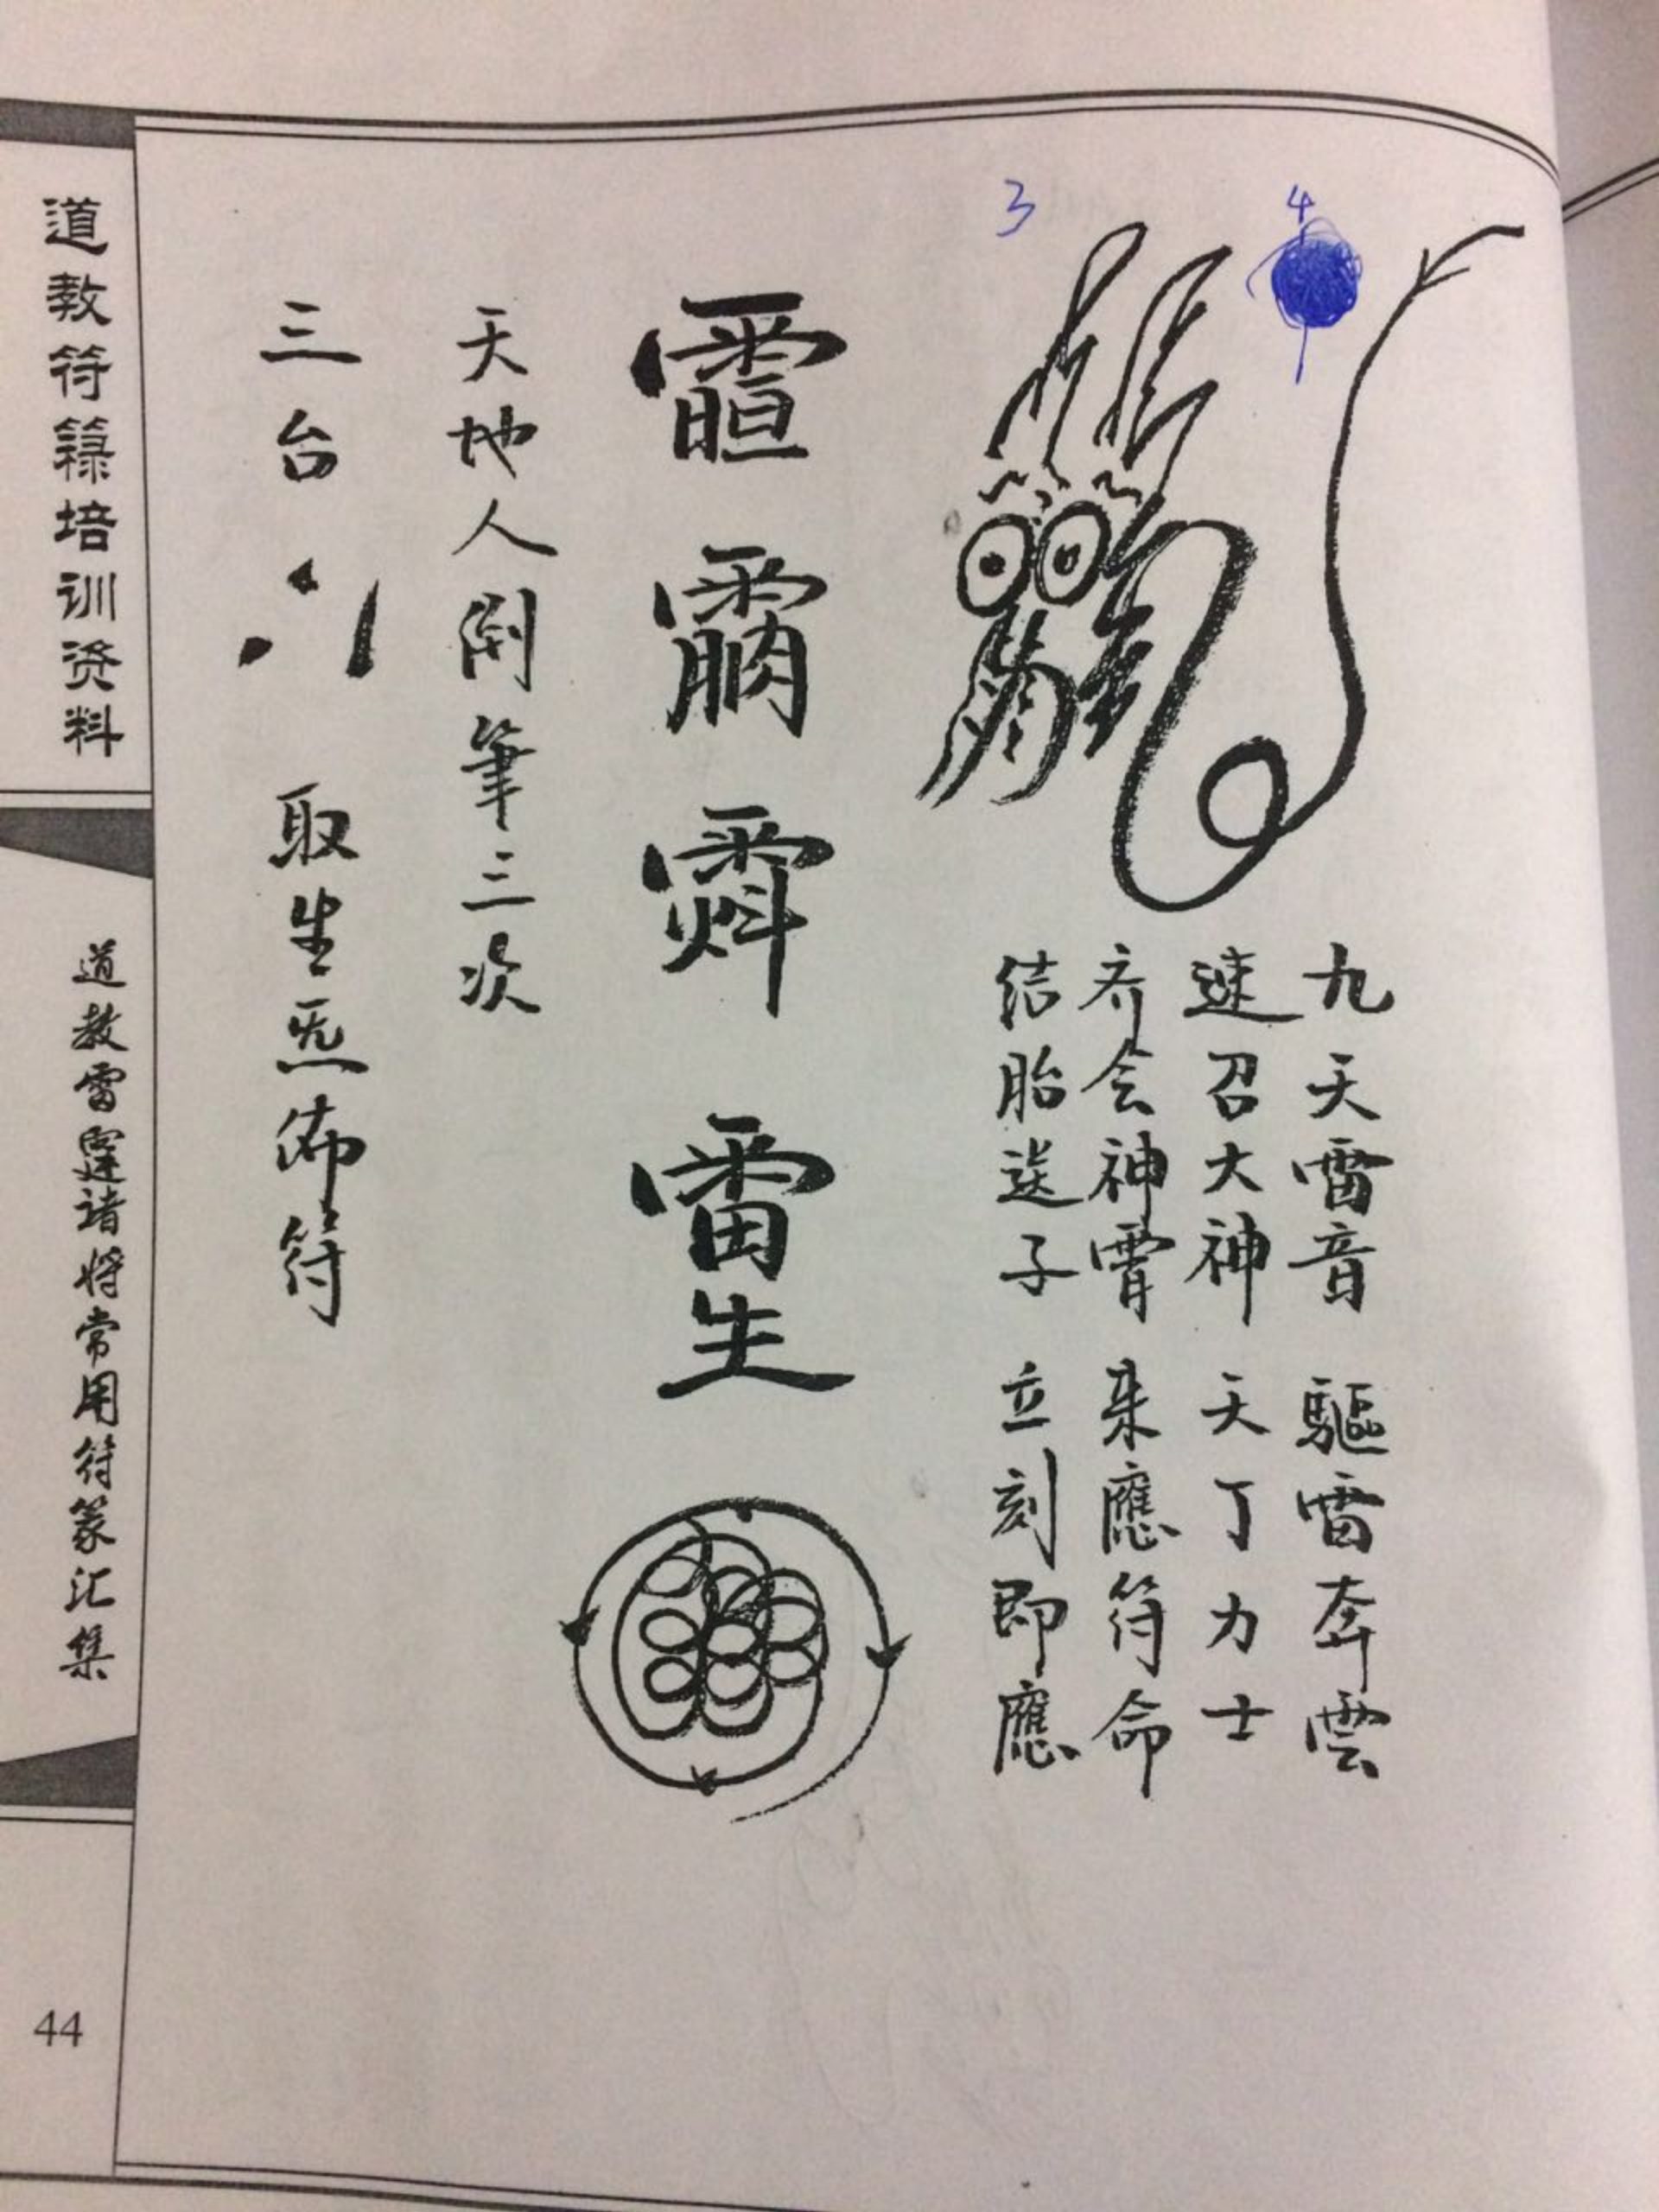 3
4
九天雷音 驅雷奔雲
速召大神 天丁力士
齐会神霄 来應符命
结胎送子 立刻即應
雷
生
天地人闭筆三次
三台 取生炁佈符
道教符箓培训资料
道教雷霆诸将常用符篆汇集
44